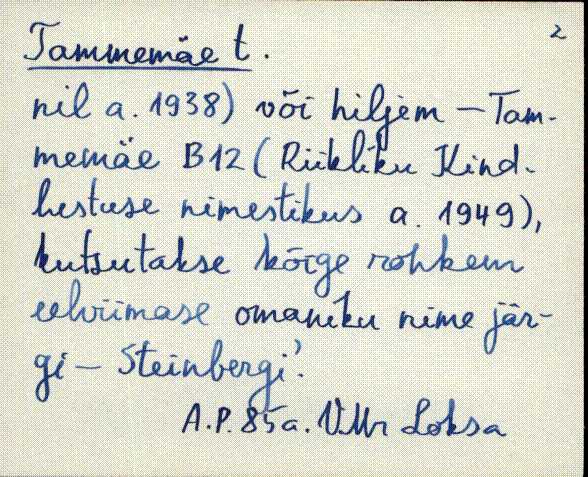 2
Tammemäe t.
nil a. 1938) või hiljem – Tam-
memäe B12 (Riikliku Kind-
lustuse nimestikus a. 1949),
kutsutakse kõige rohkem
eelviimase omaniku nime jär-
gi – Steinbergi?
A.P. 85a. VMr Loksa